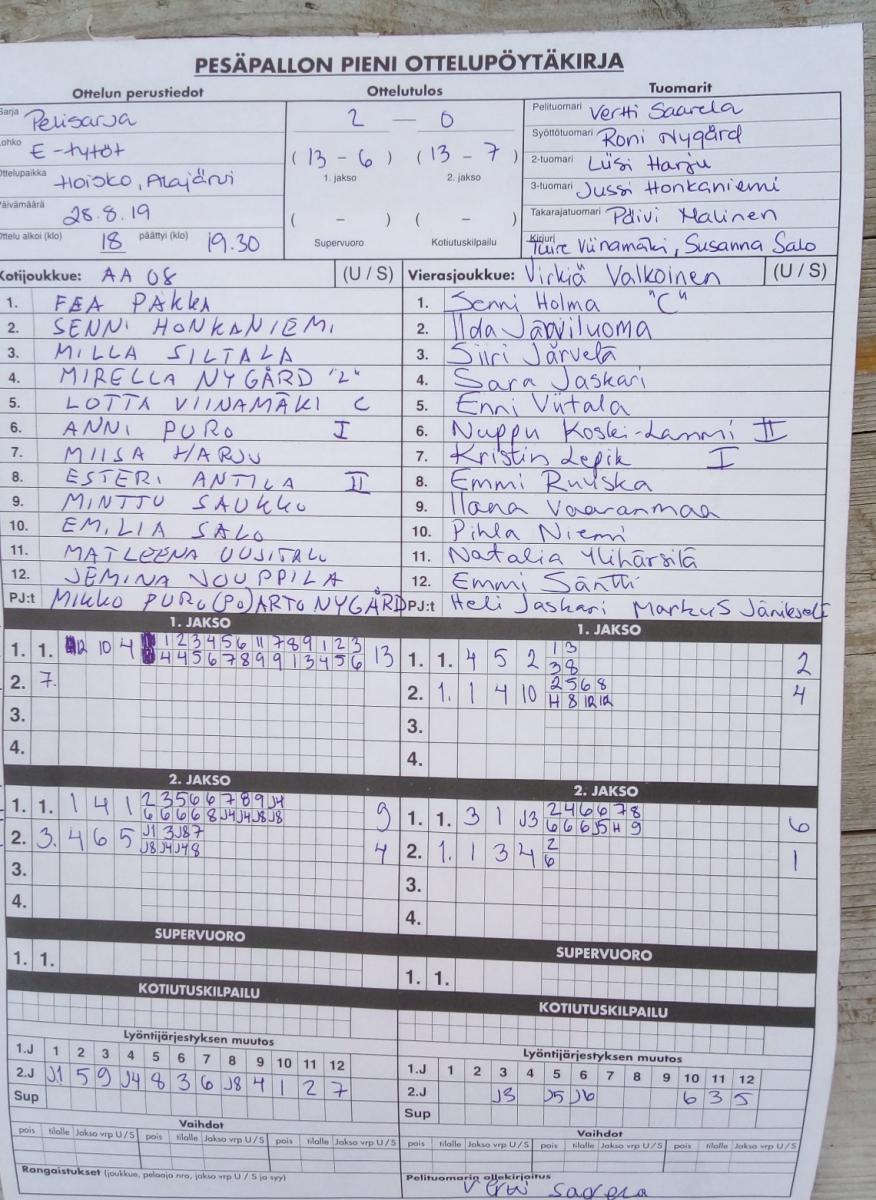 PESÄPALLON PIENI OTTELUPÖYTÄKIRJA
Ottelun perustiedot
Ottelutulos
Tuomarit
Sarja Pelisarja
Lohko E-tytöt
Ottelupaikka Hoisko, Alajärvi
Päivämäärä 28.8.19
Ottelu alkoi (klo) 18 päättyi (klo) 19.30
2 — 0
(13 - 6) (13 - 7)
1. jakso 2. jakso
( - ) ( - )
Supervuoro Kotiutuskilpailu
Pelituomari Vertti Saarela
Syöttötuomari Roni Nygård
2-tuomari Liisi Harju
3-tuomari Jussi Honkaniemi
Takarajatuomari Päivi Malinen
Kirjuri Tuire Viinamäki, Susanna Salo
Kotijoukkue: AA 08 (U / S)
1. EEA PAKKA
2. SENNI HONKANIEMI
3. MILLA SILTALA
4. MIRELLA NYGÅRD "2"
5. LOTTA VIINAMÄKI C
6. ANNI PURO I
7. MIISA HARJU
8. ESTERI ANTILA II
9. MINTTU SAUKKO
10. EMILIA SALO
11. MATLEENA UUSITALO
12. JEMINA NOUPPILA
PJ:t MIKKO PURO (PO) ARTO NYGÅRD
Vierasjoukkue: Virkiä Valkoinen (U / S)
1. Senni Holma "C"
2. Iida Järviluoma
3. Siiri Järvelä
4. Sara Jaskari
5. Enni Viitala
6. Nuppu Koski-Lammi II
7. Kristin Lepik I
8. Emmi Ruuska
9. Ilana Vaaranmaa
10. Pihla Niemi
11. Natalia Ylihärsilä
12. Emmi Säntti
PJ:t Heli Jaskari Markus
1. JAKSO
1. 1. 12 10 4 1 2 3 4 5 6 11 7 8 9 1 2 3 13
4 4 5 6 7 8 9 9 1 3 4 5 6
2. 7.
3.
4.
1. JAKSO
1. 1. 4 5 2 1 3 2
3 8
2. 1. 1 4 10 2 5 6 8 4
H 8 12 12
3.
4.
2. JAKSO
1. 1. 1 4 1 2 3 5 6 6 7 8 9 J4 9
6 6 6 6 8 J4 J4 J8 J8
2. 3. 4 6 5 J1 3 J8 7 4
J8 J4 J4 8
3.
4.
2. JAKSO
1. 1. 3 1 J3 2 4 6 6 7 8 6
6 6 6 J5 H 9
2. 1. 1 3 4 2 1
6
3.
4.
SUPERVUORO
1. 1.
SUPERVUORO
1. 1.
KOTIUTUSKILPAILU
KOTIUTUSKILPAILU
Lyöntijärjestyksen muutos
1.J 1 2 3 4 5 6 7 8 9 10 11 12
2.J J1 5 9 J4 8 3 6 J8 4 1 2 7
Sup
Lyöntijärjestyksen muutos
1.J 1 2 3 4 5 6 7 8 9 10 11 12
2.J J3 J5 J6 6 3 5
Sup
Vaihdot
pois tilalle Jakso vrp U / S pois tilalle Jakso vrp U / S pois tilalle Jakso vrp U / S
Vaihdot
pois tilalle Jakso vrp U / S pois tilalle Jakso vrp U / S pois tilalle Jakso vrp U / S
Rangaistukset (joukkue, pelaaja nro, jakso vrp U / S ja syy)
Pelituomarin allekirjoitus
Vertti Saarela